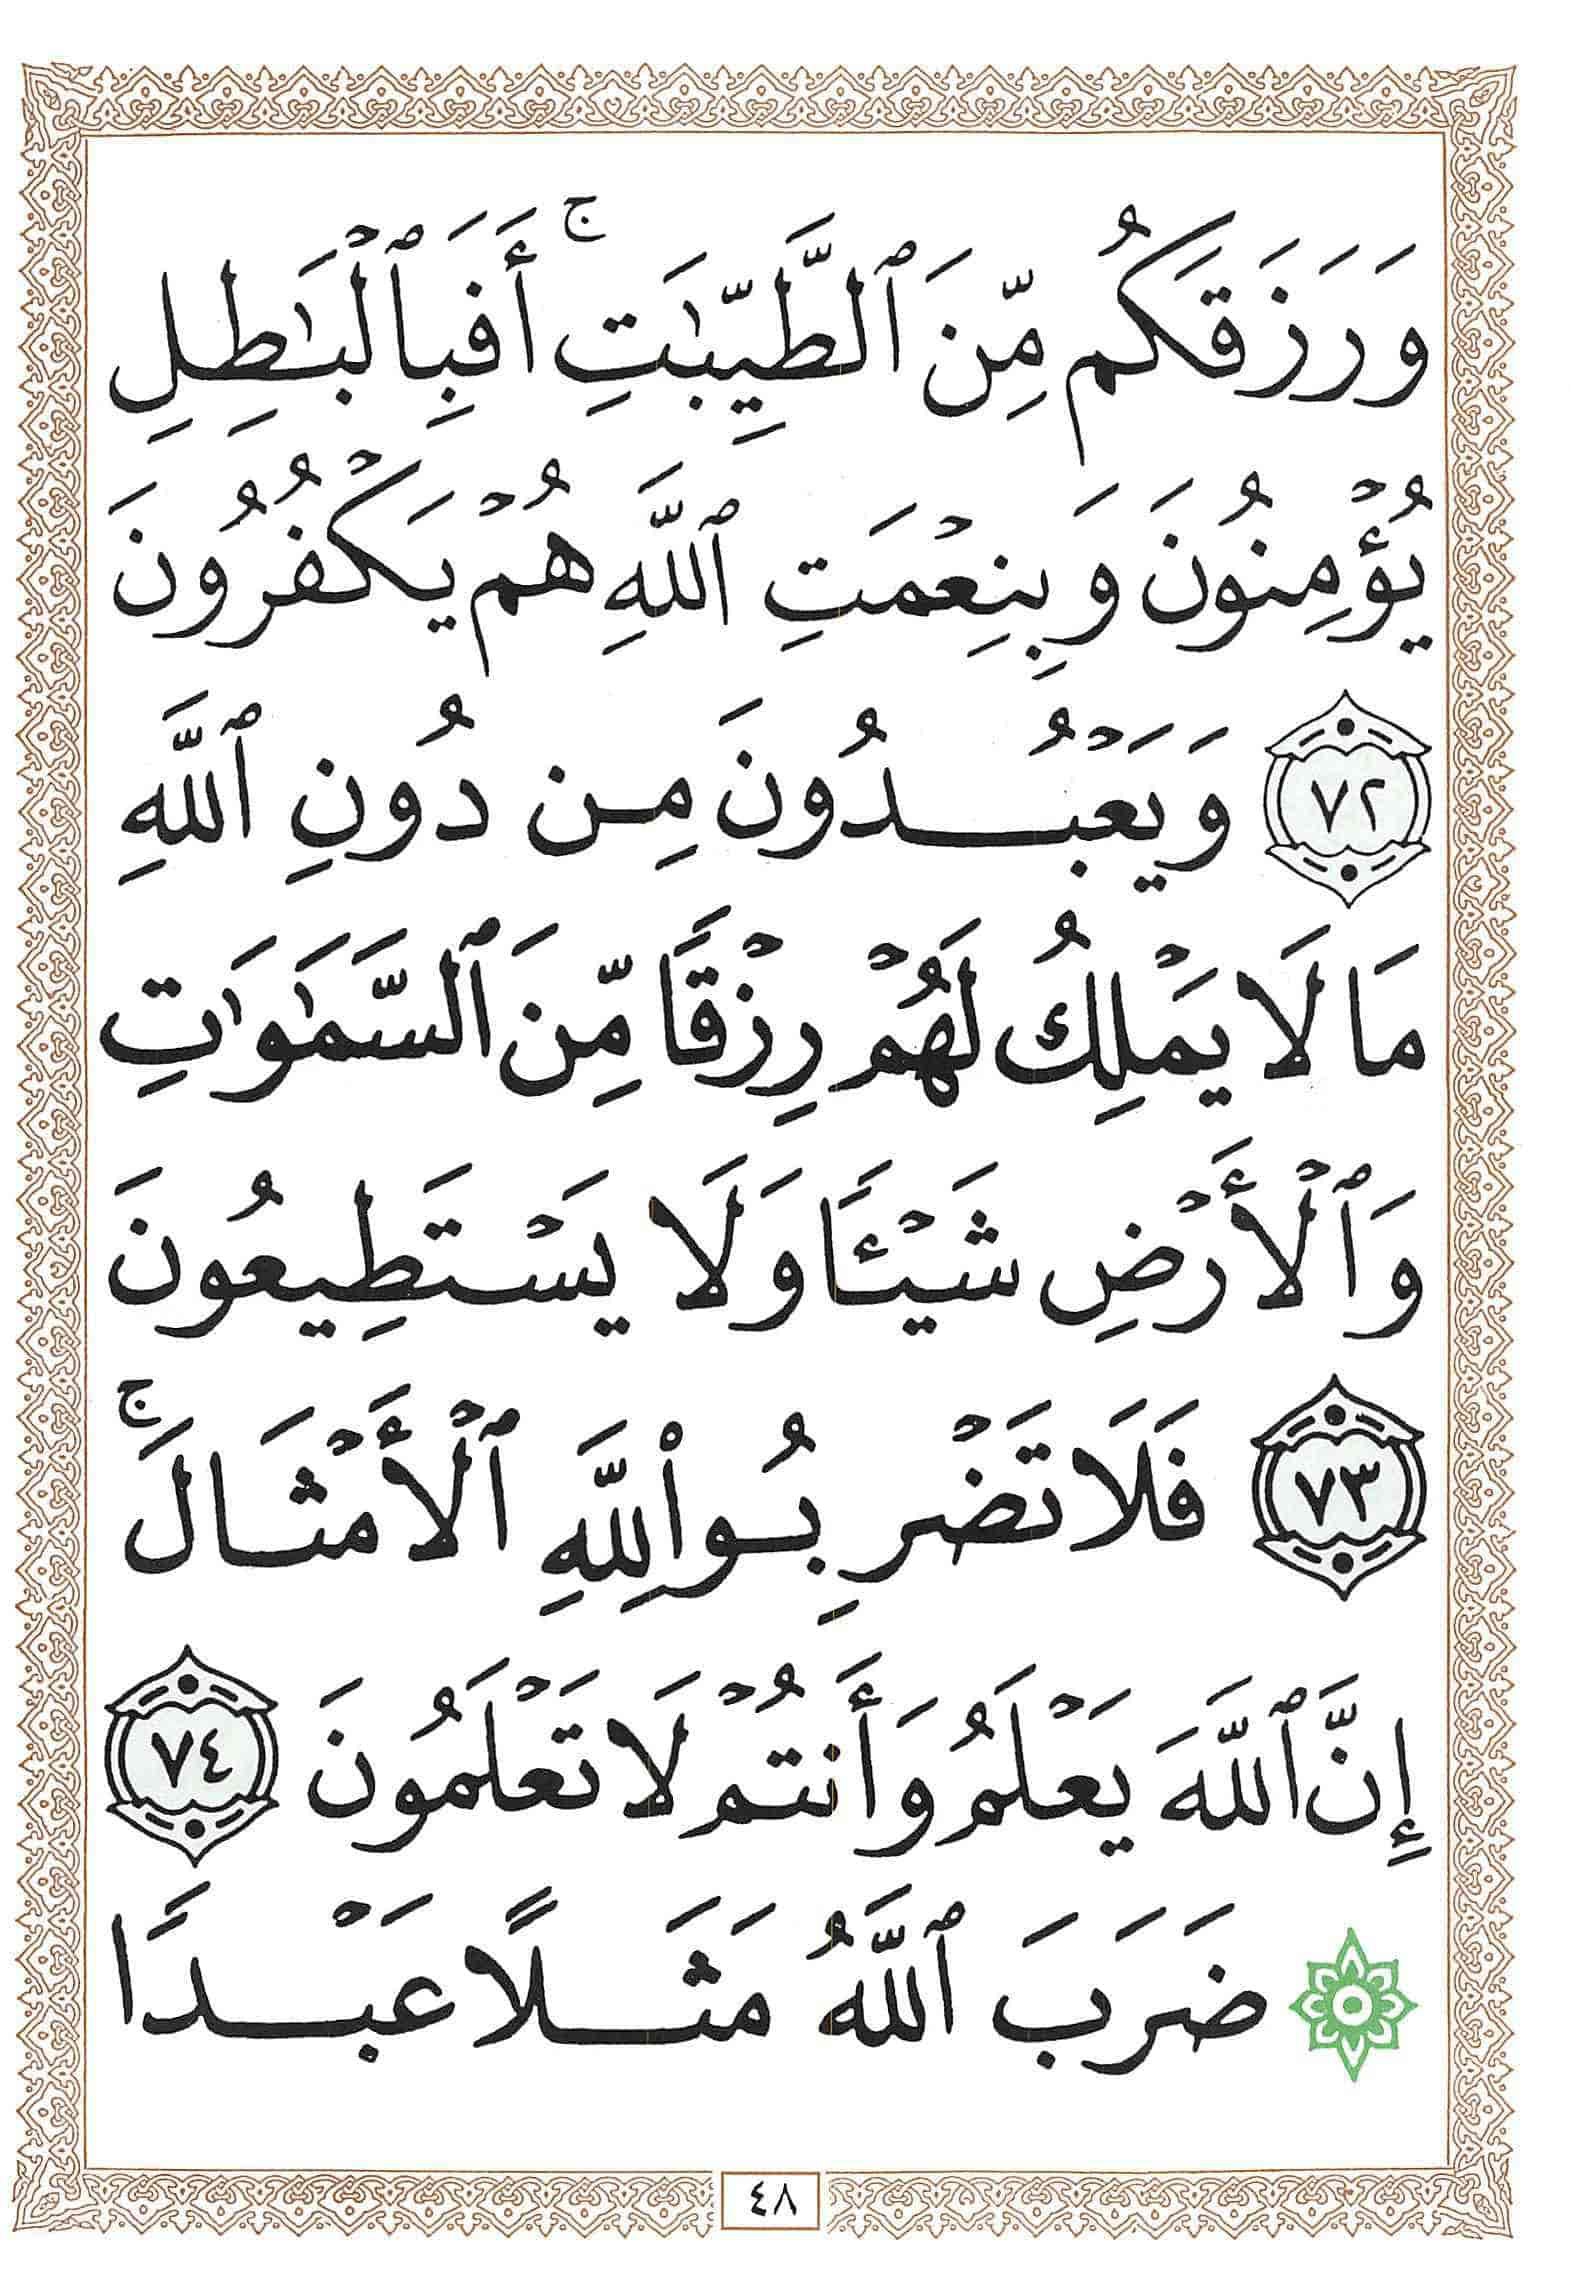 وَرَزَقَكُم مِّنَ ٱلطَّيِّبَٰتِ ۚ أَفَبِٱلْبَٰطِلِ
يُؤْمِنُونَ وَبِنِعْمَتِ ٱللَّهِ هُمْ يَكْفُرُونَ
٧٢ وَيَعْبُدُونَ مِن دُونِ ٱللَّهِ
مَا لَا يَمْلِكُ لَهُمْ رِزْقًا مِّنَ ٱلسَّمَٰوَٰتِ
وَٱلْأَرْضِ شَيْـًٔا وَلَا يَسْتَطِيعُونَ
٧٣ فَلَا تَضْرِبُوا۟ لِلَّهِ ٱلْأَمْثَالَ ۚ
إِنَّ ٱللَّهَ يَعْلَمُ وَأَنتُمْ لَا تَعْلَمُونَ ٧٤
۞ ضَرَبَ ٱللَّهُ مَثَلًا عَبْدًا
٤٨